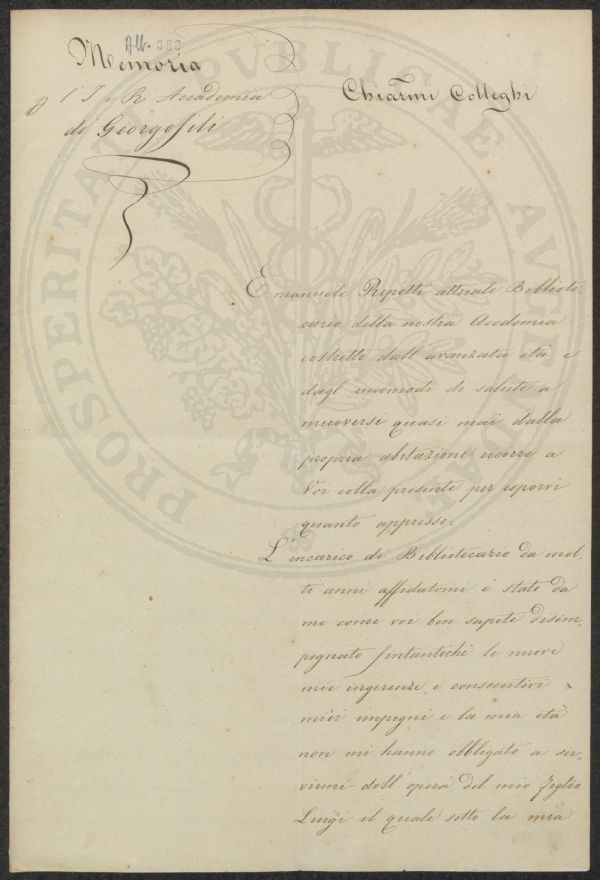 Alb. 383
Memoria
l' I e R Accademia
de Georgofili
Chiarmi Colleghi
Emanuele Repetti attuale Bibliote-
cario della nostra Accademia
costretto dall'avanzata età e
dagl'incomodi di salute a
muoversi quasi mai dalla
propria abitazione ricorre a
Voi colla presente per esporvi
quanto appresso.
L'incarico di Bibliotecario da mol-
ti anni affidatomi è stato da
me come voi ben sapete disim-
pegnato fintantochè le nuove
mie ingerenze, e consecutivi
miei impegni e la mia età
non mi hanno obbligato a ser-
virmi dell'opera del mio figlio
Luigi il quale sotto la mia
PROSPERITATI PUBLICAE AUGENDAE